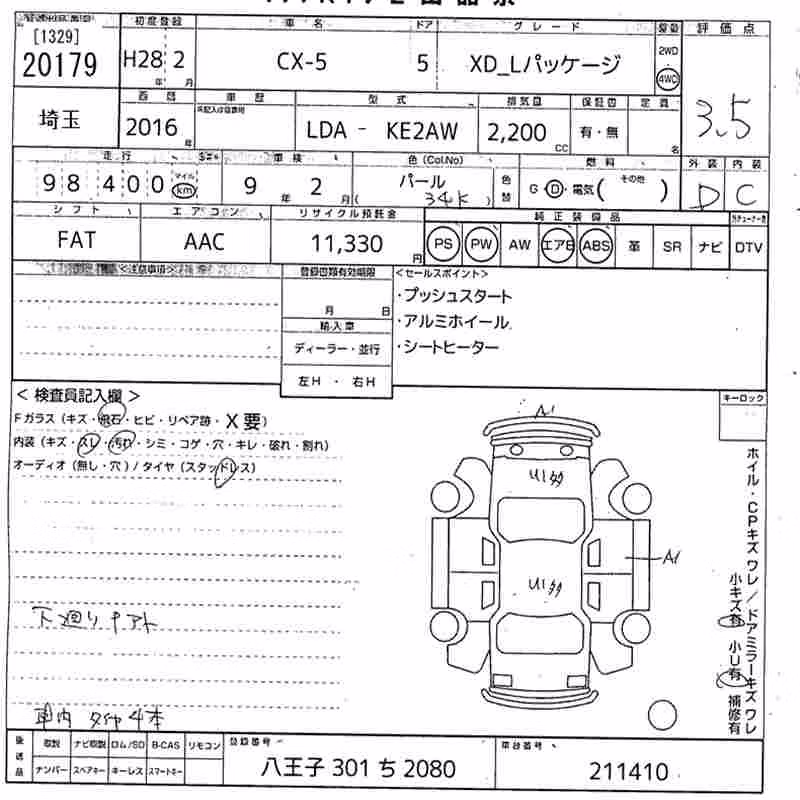 [1329]
20179
初度登録
H28 2
年 月
車名
CX-5
ドア
5
グレード
XD_Lパッケージ
2WD
4WD
評価点
3.5
埼玉
西暦
2016年
車歴
型式
LDA - KE2AW
排気量
2,200 CC
保証書
有・無
定員
名
走行
98400
マイル
km
車検
9年 2月
色(Col.No)
パール
34K
色替
燃料
G D・電気( その他 )
外装
D
内装
C
シフト
FAT
エアコン
AAC
リサイクル預託金
11,330円
純正装備品
PS PW AW エアB ABS 革 SR ナビ DTV
<注意事項>
登録書類有効期限
月 日
輸入車
ディーラー・並行
左H・右H
<セールスポイント>
・プッシュスタート
・アルミホイール
・シートヒーター
<検査員記入欄>
Fガラス(キズ・飛石・ヒビ・リペア跡・X要)
内装(キズ・スレ・汚れ・シミ・コゲ・穴・キレ・破れ・割れ)
オーディオ(無し・穴)/タイヤ(スタッドレス)
キーロック
A1
U1多
A1
U1多
ホイル・CPキズ ワレ/ドアミラーキズ ワレ
小キズ有 小U有 補修有
下廻りサアト
車内 タイヤ4本
後送品
取説 ナビ取説 ロム/SD B-CAS リモコン
ナンバー スペアキー キーレス スマートキー
登録番号
八王子 301 ち 2080
車台番号
211410